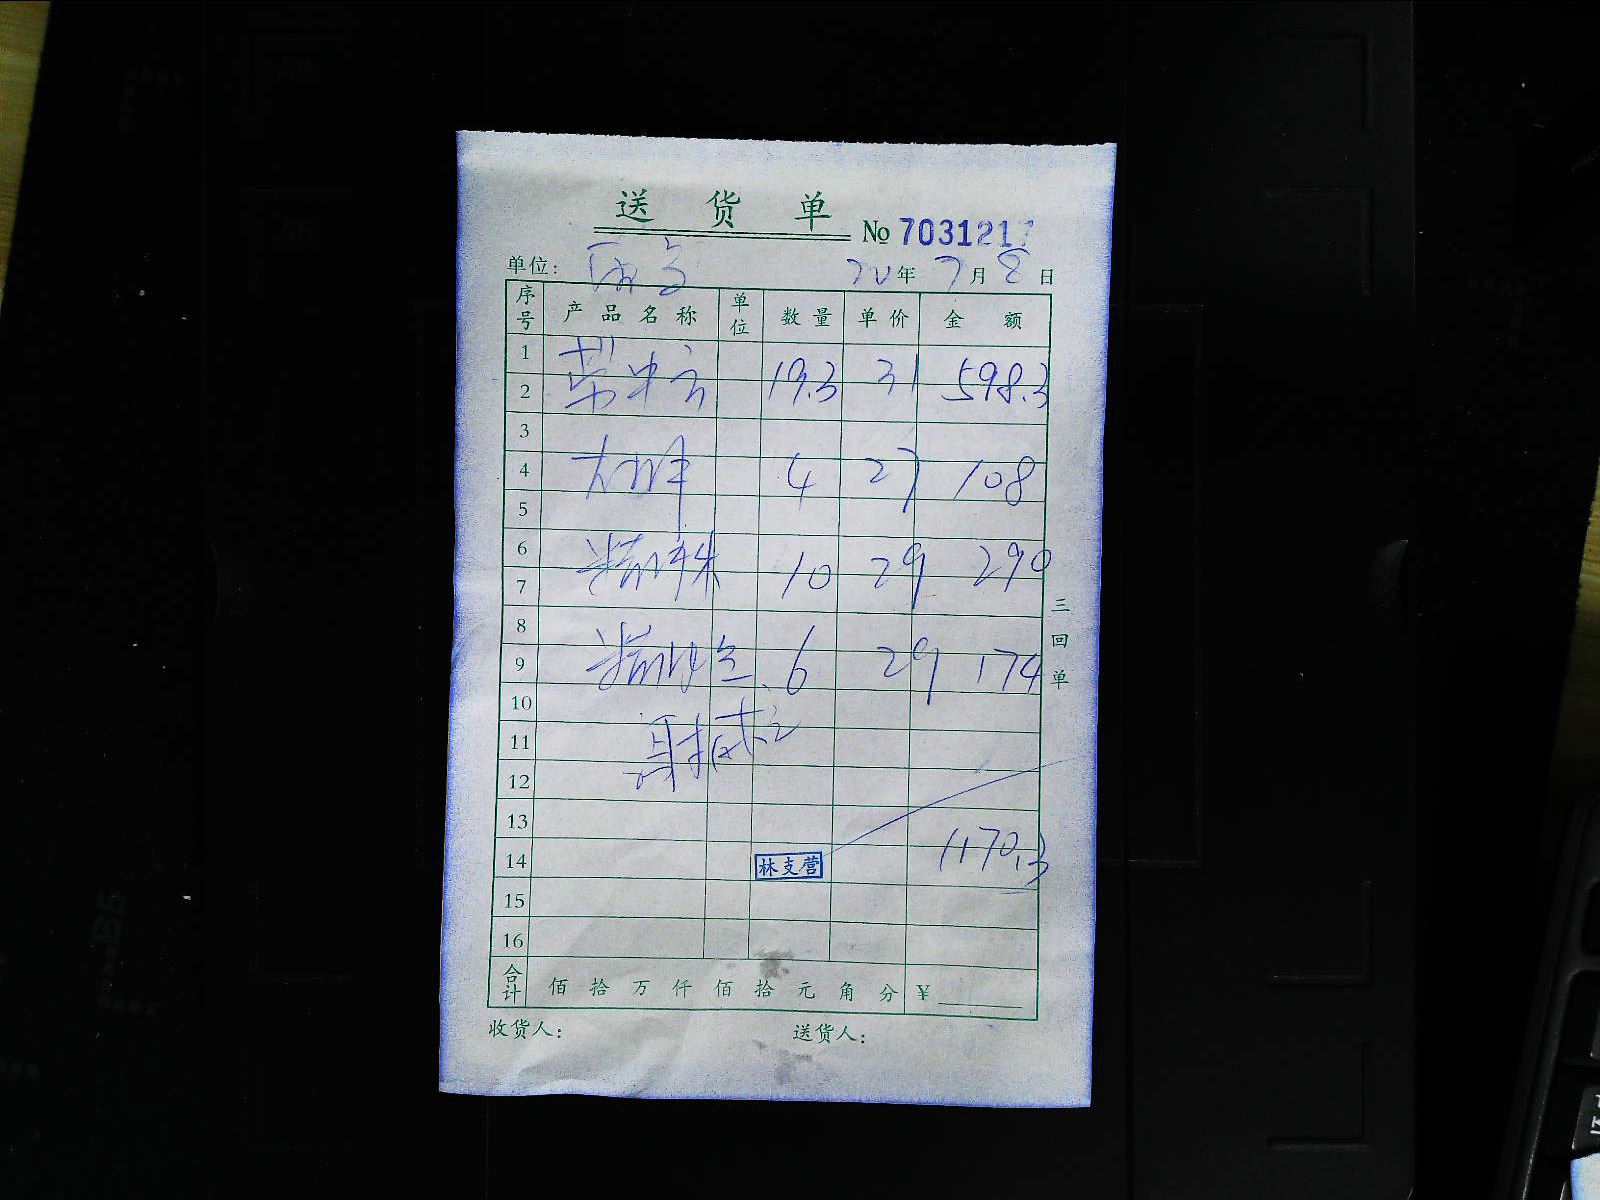 送 货 单
No 7031217
单位: 20年 7月 8日
序号 产品名称 单位 数量 单价 金额
1
2 19.3 31 598.3
3
4 4 27 108
5
6
7 10 29 290
8
9 6 29 174
10
11
12
13
14 林支营 1170.3
15
16
合计 佰 拾 万 仟 佰 拾 元 角 分 ¥
收货人: 送货人:
三回单